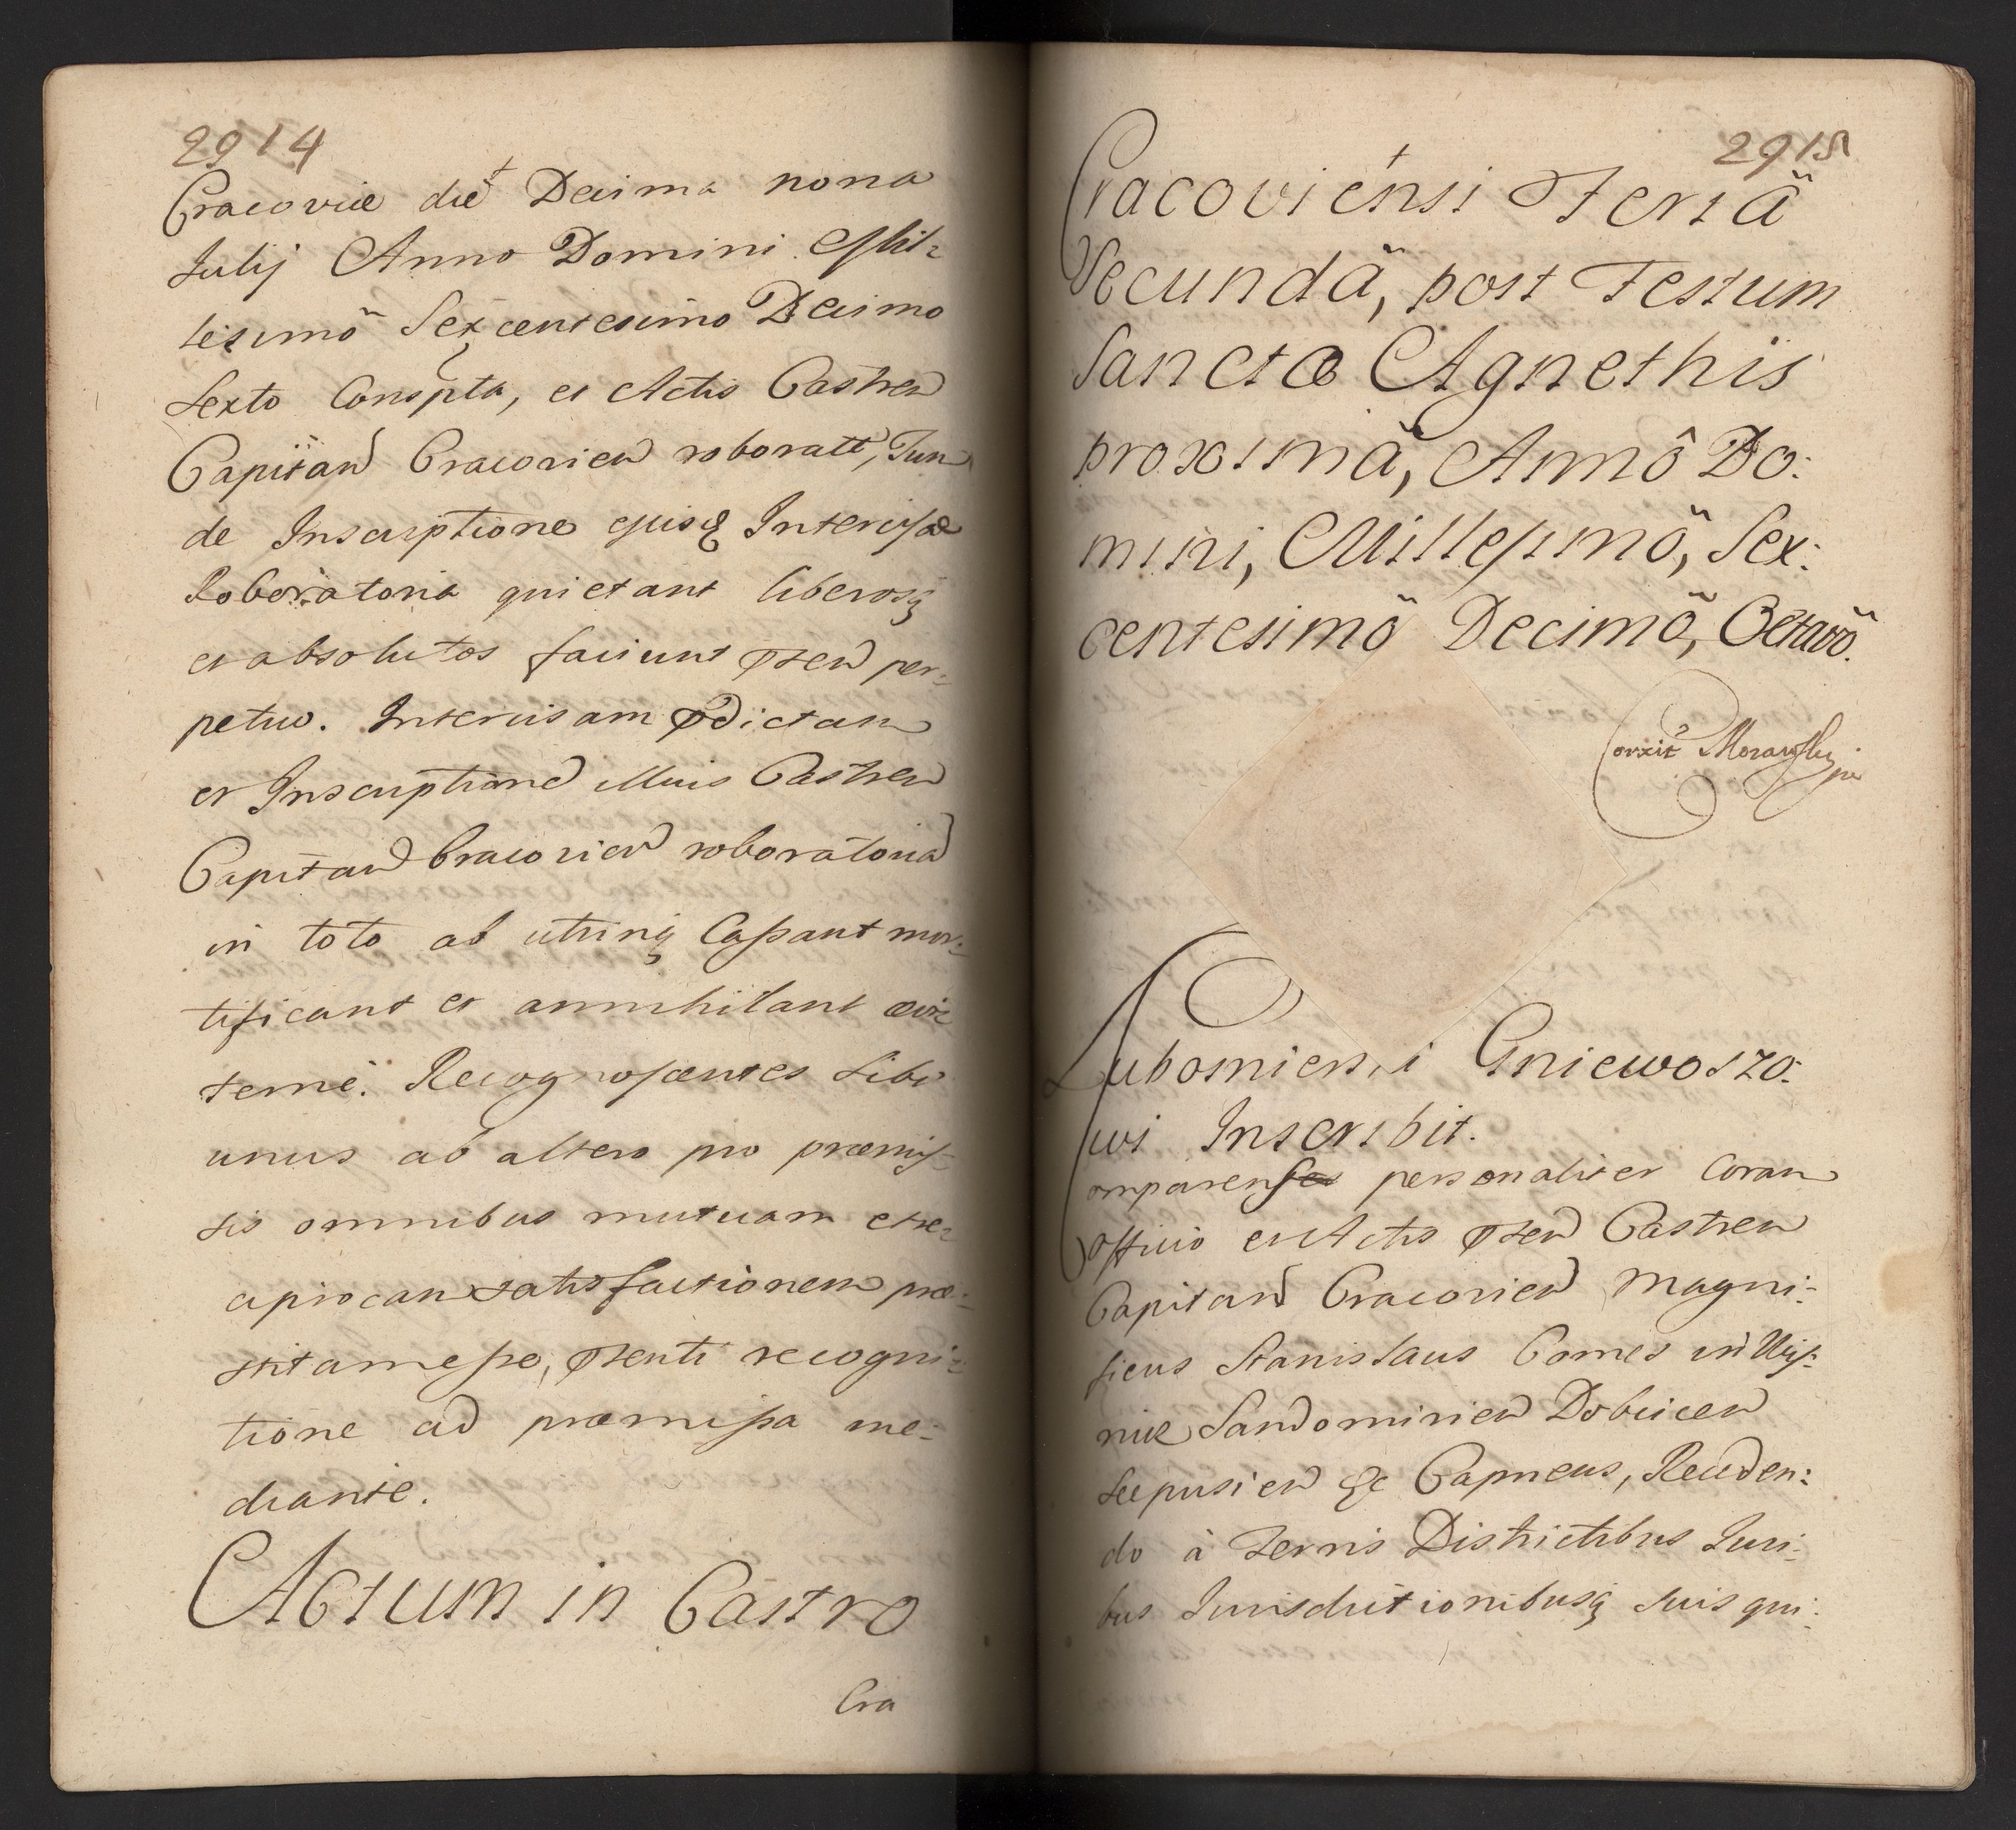 2914
Cracoviæ die Decima nona
Julij Anno Domini Mil=
lesimo Sexcentesimo Decimo
Sexto Conspta, et Actis Castren
Capitan Cracovien roboratt, Tum
de Inscriptione ejusq Intercisæ
Roboratoria quietant liberosq
et absolutos faciunt pten per=
petuo. Intercisam pdictam
et Inscriptione illius Castren
Capitan Cracovien roboratoria
in toto ab utrinq Cassant mor=
tificant et annihilant
terne. Recognoscentes sibi
unus ab altero pro præmis=
sis omnibus mutuam et re=
ciprocam satisfactionem præ=
stitam esse, ptenti recogni=
tione ad præmissa me=
diante.
Actum in Castro
Cra
2915
Cracoviensi Feriâ
Secundâ, post Festum
Sanctæ Agnethis
proximâ, Annô Do:
mini, Millesimô, Sex:
centesimô Decimô, Octavô.
Corxit Morawski
Lubomierski Gniewoszo:
wi Inscribit.
Comparens personaliter Coram
Officio et Actis pten Castren
Capitan Cracovien Magni:
ficus Stanislaus Comes in Wis:
nic Sandomirien Dobcicen
Scepusien &c Capneus, Receden:
do à Terris Districtibus Juri:
bus Jurisdictionibusq suis qui: